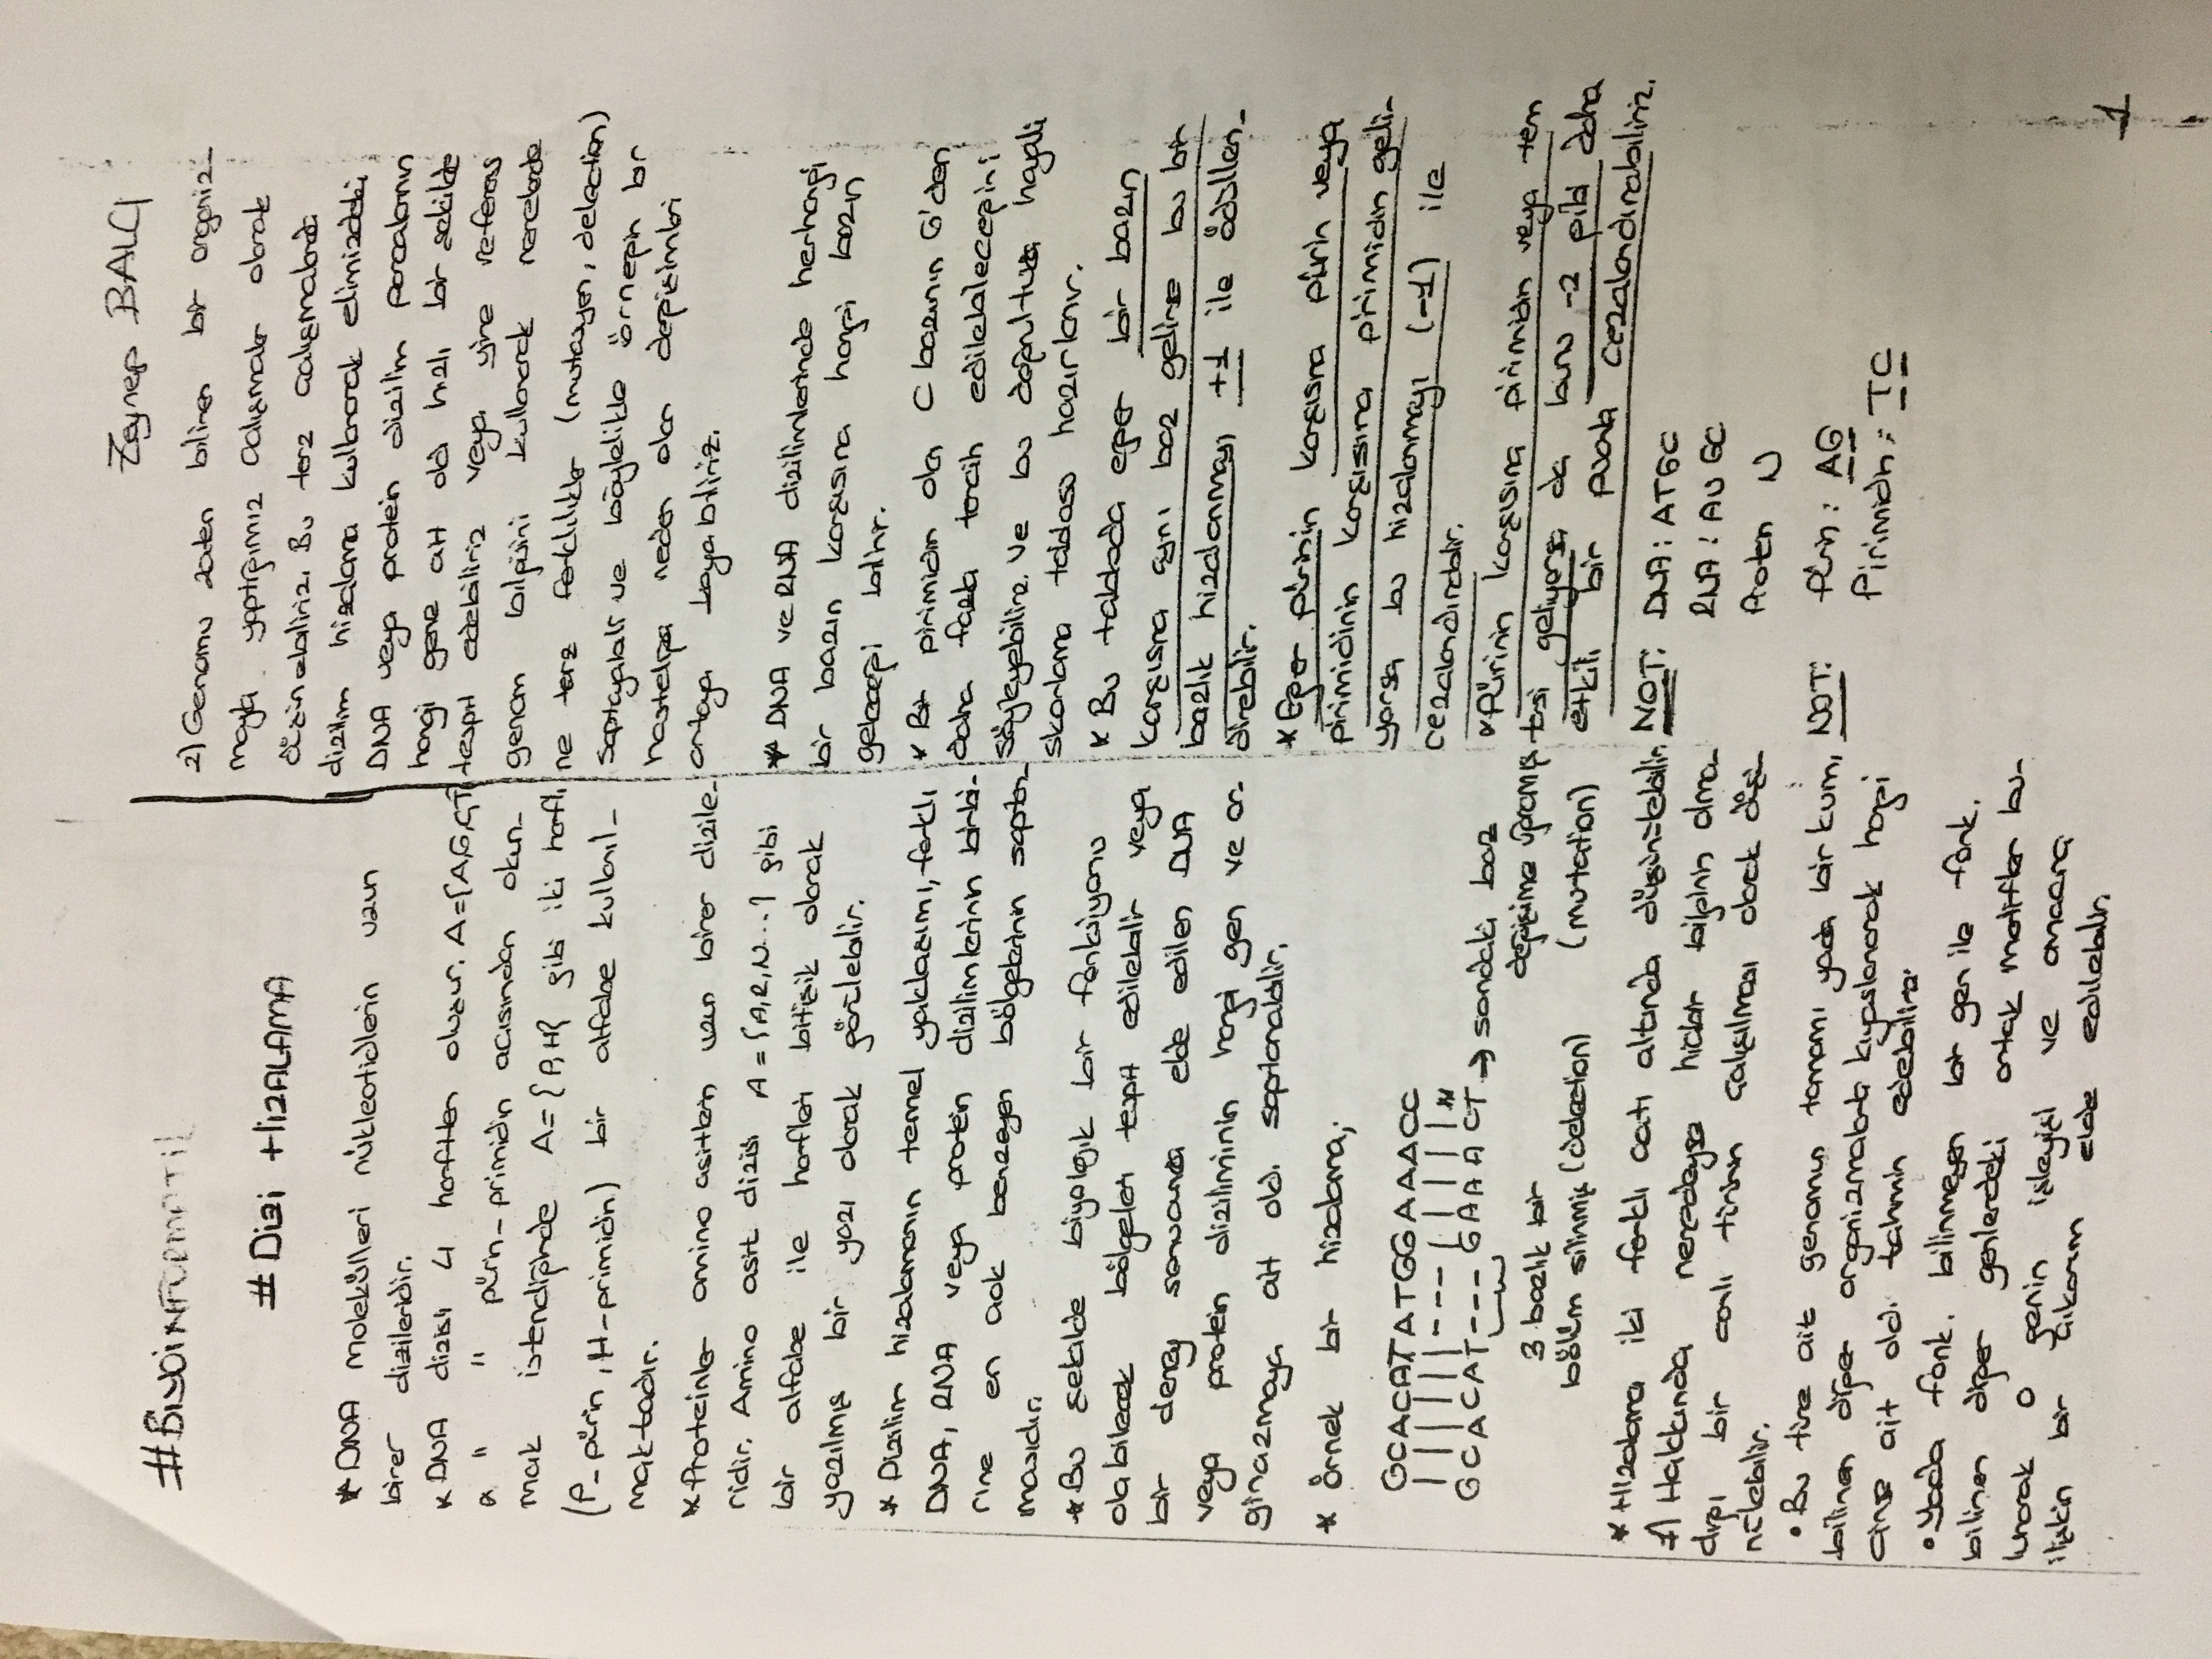 Zeynep BALCI
#BiyoiNFORMATiK
# Dizi HizALAMA
* DNA molekülleri nükleotidlerin uzun
birer dizileridir.
* DNA dizisi 4 harften oluşur. A={A,G,C,T}
" " pürin-primidin açısından okun-
mak istendiğinde A={P,H} gibi iki harfli
(P-pürin, H-primidin) bir alfabe kullanıl-
maktadır.
* Proteinler amino asitlerin uzun birer dizile-
ridir. Amino asit dizisi A={A,R,N...} gibi
bir alfabe ile harfleri bitişik olarak
yazılmış bir yazı olarak görülebilir.
* Dizilim hizalamanın temel yaklaşımı, farklı
DNA, RNA veya protein dizilimlerinin birbi-
rine en çok benzeyen bölgelerinin saptan-
masıdır.
* Bu şekilde biyolojik bir fonksiyonu
olabilecek bölgeleri tespit edilebilir veya
bir deney sonucunda elde edilen DNA
veya protein diziliminin hangi gen ve or-
ginazmaya ait old. saptanabilir.
* örnek bir hizalama;
GCACATATGGAAACC
GCACAT---GAAACT → sondaki baz
değişime uğramış
(mutation)
3 bazlık bir
bölüm silinmiş (delection)
* Hizalama iki farklı çatı altında düşünülebilir.
1) Hakkında neredeyse hiçbir bilginin olma-
dığı bir canlı türünün çalışılması olarak düşü-
nülebilir.
• Bu türe ait genomun tamamı yada bir kısmı,
bilinen diğer organizmalarla kıyaslanarak hangi
cinse ait old. tahmin edebiliriz.
• Yada fonk. bilinmeyen bir gen ile fonk.
bilinen diğer genlerdeki ortak motifler bu-
lunarak o genin işleyişi ve amacına
ilişkin bir çıkarım elde edilebilir.
2) Genomu zaten bilinen bir organiz-
mayla yaptığımız çalışmalar olarak
düşünebiliriz. Bu tarz çalışmalarda
dizilim hizalama kullanarak elimizdeki
DNA veya protein dizilim parçalarının
hangi gene ait old hızlı bir şekilde
tespit edebiliriz veya yine referans
genom bilgisini kullanarak nerelerde
ne tarz farklılıklar (mutasyon, delection)
saptayabilir ve böylelikle örneğin bir
hastalığa neden olan değişimleri
ortaya koyabiliriz.
* DNA ve RNA dizilimlerinde herhangi
bir bazın karşısına hangi bazın
geleceği bilinir.
* Bir pirimidin olan C bazının G'den
daha fazla tercih edilebileceğini
söyleyebiliriz. Ve bu doğrultuda hayali
skorlama tablosu hazırlanır.
* Bu tabloda eğer bir bazın
karşısına aynı baz gelirse bu bir
bazlık hizalanmayı +1 ile ödüllen-
direbilir.
* Eğer pürinin karşısına pürin veya
pirimidinin karşısına pirimidin geli-
yorsa bu hizalanmayı (-1) ile
cezalandırabilir.
* Pürinin karşısına pirimidin veya tam
tersi geliyorsa da bunu -2 gibi daha
etkili bir puanla cezalandırabiliriz.
NOT: DNA: ATGC
RNA: AUGC
Protein N
NOT: Pürin: AG
Pirimidin: TC
1